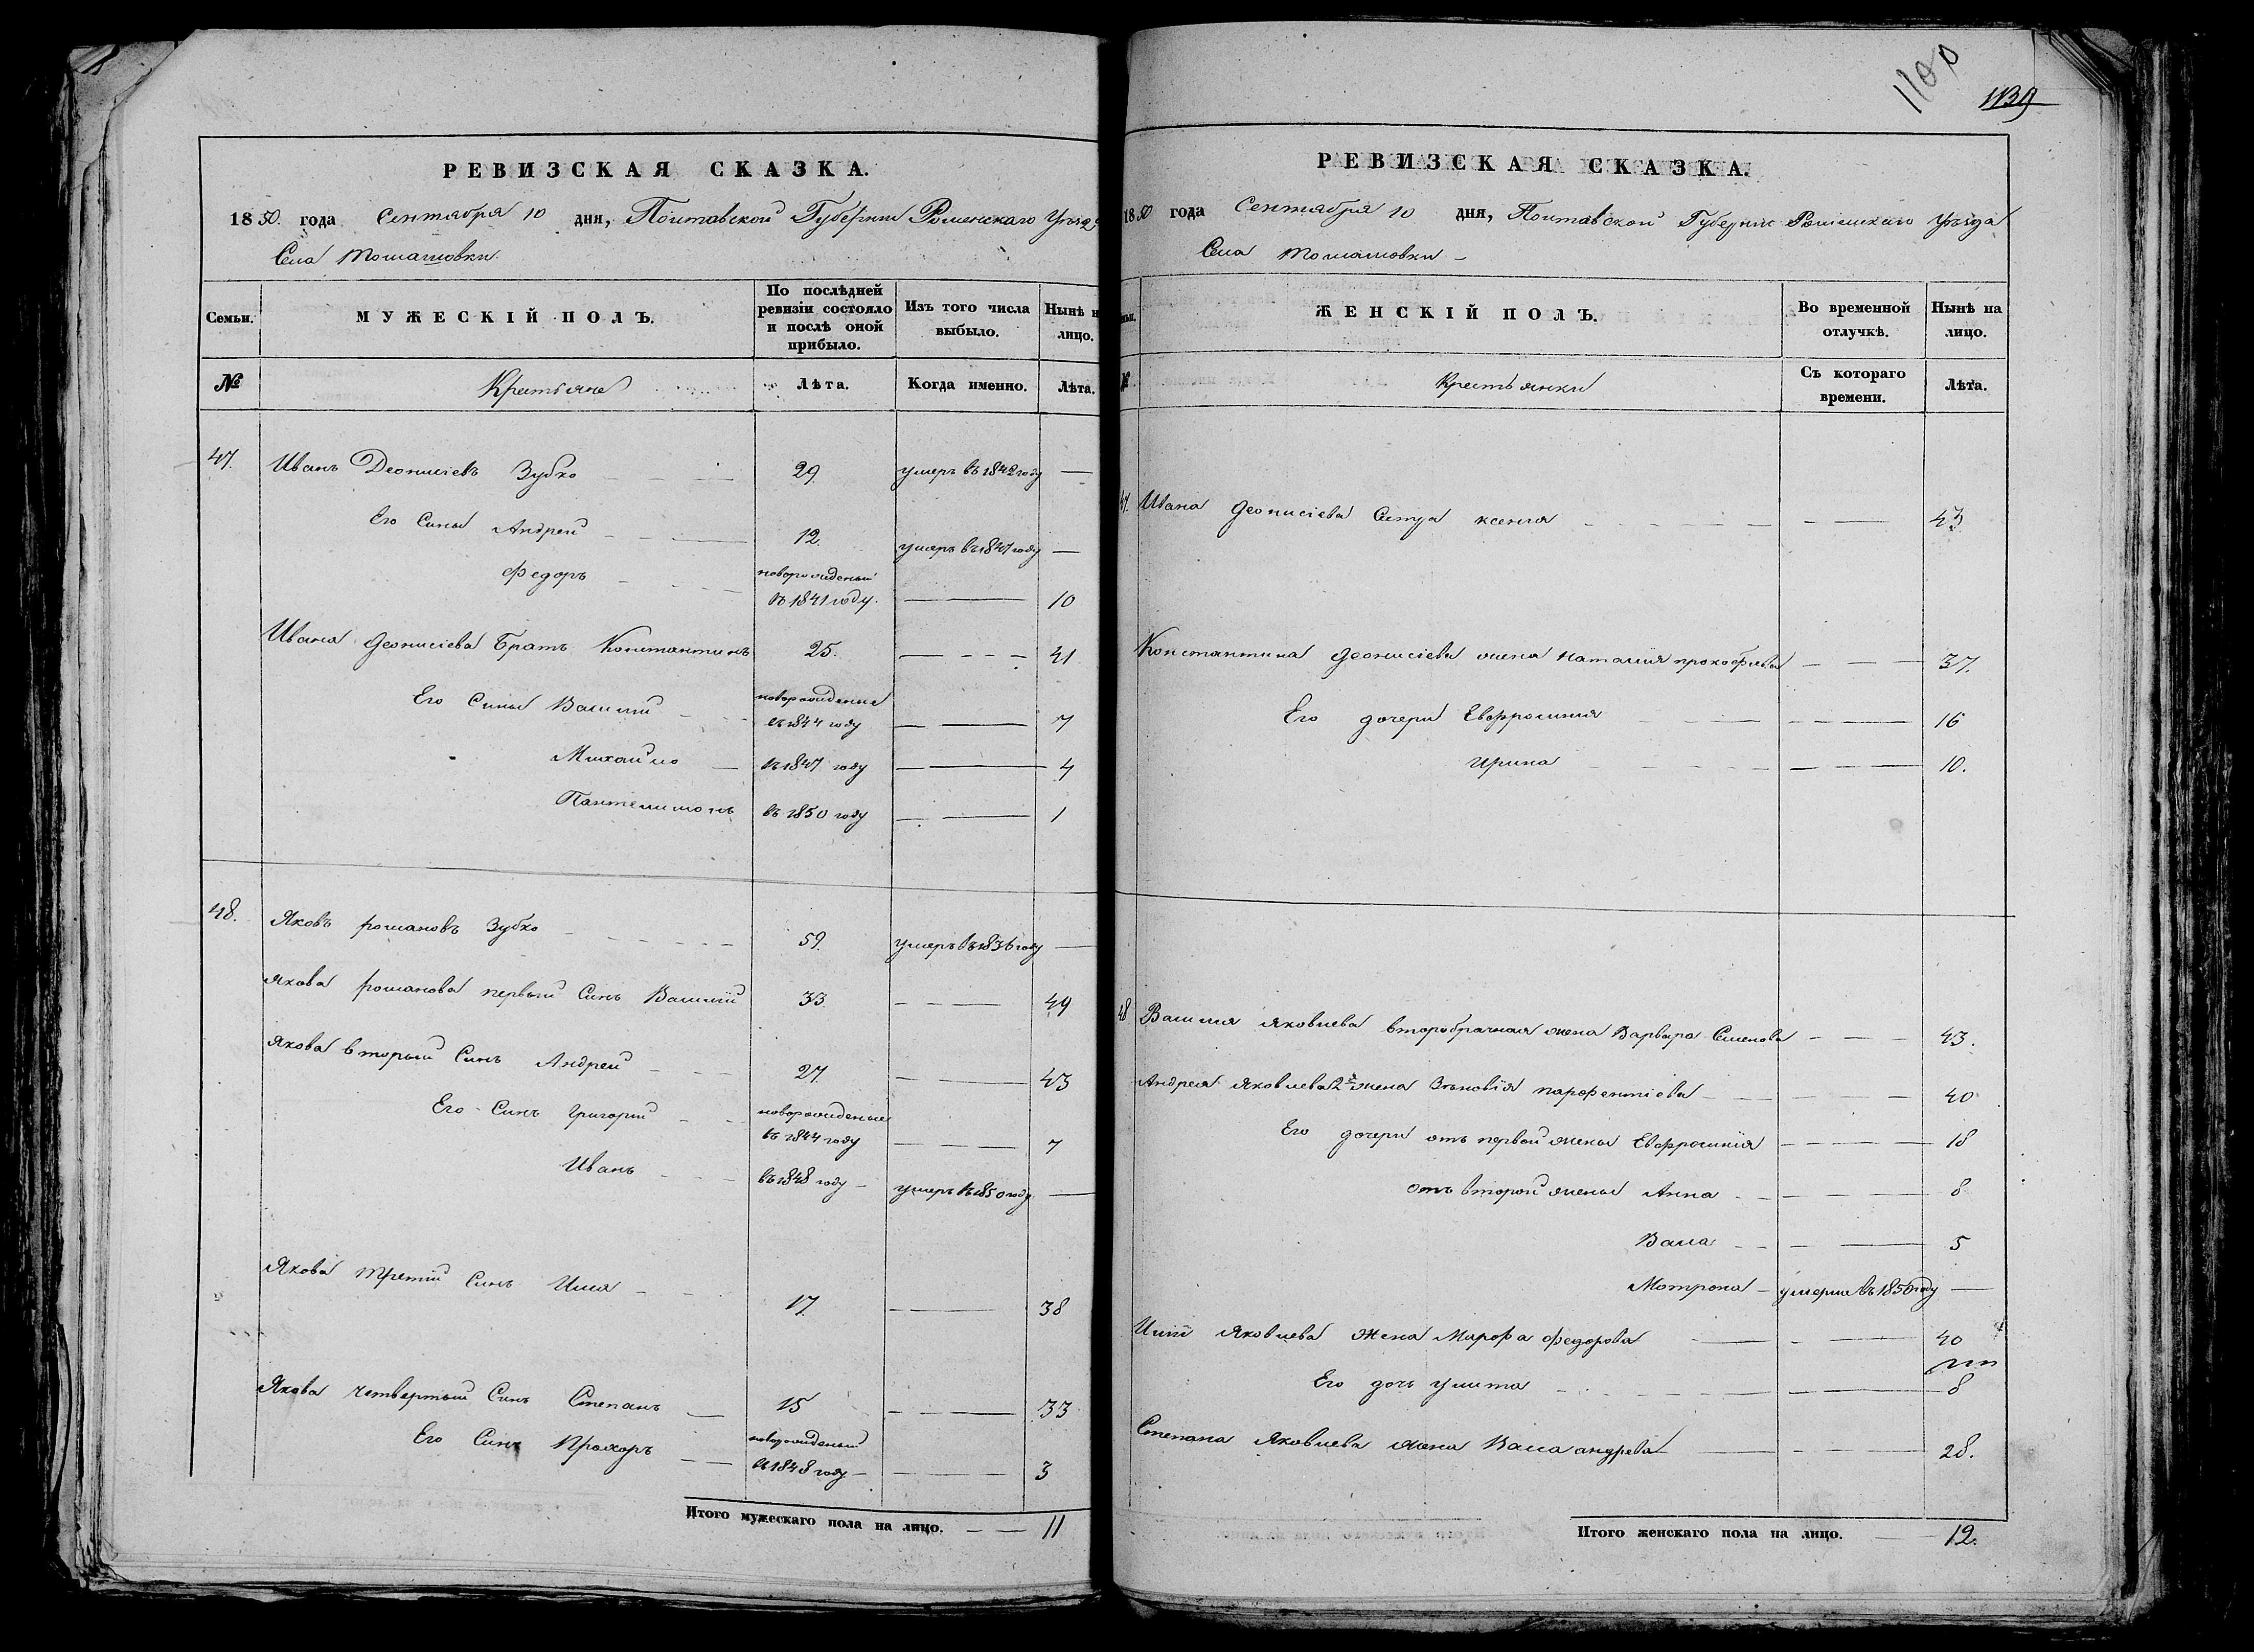 110
1139
РЕВИЗСКАЯ СКАЗКА.
1850 года Сентября 10 дня, Полтавской Губернии Роменскаго Уезда
Села Томашовки.
Семьи.
МУЖЕСКІЙ ПОЛЪ.
По послѣдней ревизіи состояло и послѣ оной прибыло.
Изъ того числа выбыло.
Нынѣ на лицо.
№
Крестьяне
Лѣта.
Когда именно.
Лѣта.
47. Иванъ Деонисіевъ Зубко 29 умеръ въ 1842 году —
Его Сины Андрей 12. умеръ въ 1847 году —
Федоръ новорожденый
въ 1841 году. — 10
Ивана Деонисіева Братъ Константинъ 25. — 41
Его Сины Василий новорожденые
въ 1844 году — 7
Михайло въ 1847 году — 4
Пантелимонъ въ 1850 году — 1
48. Яковъ романовъ Зубко 59. умеръ въ 1836 году —
Якова романова первый Синъ Василій 33. — 49
Якова вторый Синъ Андрей 27. — 43
Его Синъ Григорий новорожденые
въ 1844 году — 7
Иванъ въ 1848 году — умеръ въ 1850 году —
Якова третій Синъ Илия 17. — 38
Якова четвертый Синъ Степанъ 15 — 33
Его Синъ Прохоръ новорожденый
въ 1848 году — 3
Итого мужескаго пола на лицо. — 11
РЕВИЗСКАЯ СКАЗКА.
1850 года Сентября 10 дня, Полтавской Губерніи Роменскаго Уѣзда
Села Томашовки —
ЖЕНСКІЙ ПОЛЪ.
Во временной отлучкѣ.
Нынѣ на лицо.
№
Крестьянки
Съ котораго времени.
Лѣта.
47. Ивана Деонисіева Сестра ксения —
Константина Деонисіева жена Наталия прокофьева — 37.
Его дочери Евфросиния — 16
Ирина — 10.
48 Василия Яковлева второбрачная жена Варвара Семенова — 43.
Андрея Яковлева 2я жена Зѣновія парфентіева — 40
Его дочери отъ первой жены Евфросинія — 18
отъ второй жены Анна — 8
Васса — 5
Мотрона — умерше въ 1850 году —
Иліи Яковлева жена Марфа Федорова — 40
Его дочь улита — 8
Степана Яковлева жена Васса андреева — 28.
Итого женскаго пола на лицо. — 12.